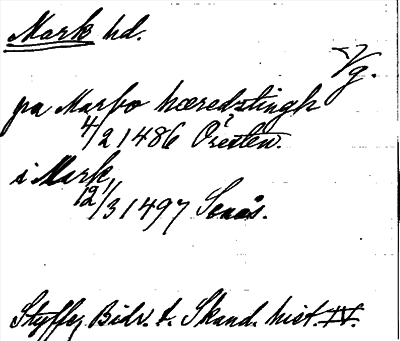 Mark hd.
Vg.
pa Marbo hæredztingh
4/2 1486 Öresten.
i Mark,
12/3 1497
Styffe, Bidr. t. Skand. hist. IV.